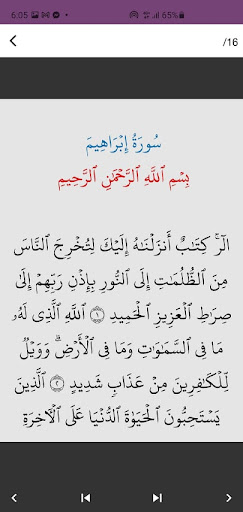 6:05
65%
/16
سُورَةُ إِبْرَاهِيمَ
بِسْمِ ٱللَّهِ ٱلرَّحْمَٰنِ ٱلرَّحِيمِ
الٓرۚ كِتَٰبٌ أَنزَلْنَٰهُ إِلَيْكَ لِتُخْرِجَ ٱلنَّاسَ
مِنَ ٱلظُّلُمَٰتِ إِلَى ٱلنُّورِ بِإِذْنِ رَبِّهِمْ إِلَىٰ
صِرَٰطِ ٱلْعَزِيزِ ٱلْحَمِيدِ ١ ٱللَّهِ ٱلَّذِى لَهُۥ
مَا فِى ٱلسَّمَٰوَٰتِ وَمَا فِى ٱلْأَرْضِۗ وَوَيْلٌ
لِّلْكَٰفِرِينَ مِنْ عَذَابٍ شَدِيدٍ ٢ ٱلَّذِينَ
يَسْتَحِبُّونَ ٱلْحَيَوٰةَ ٱلدُّنْيَا عَلَى ٱلْءَاخِرَةِ